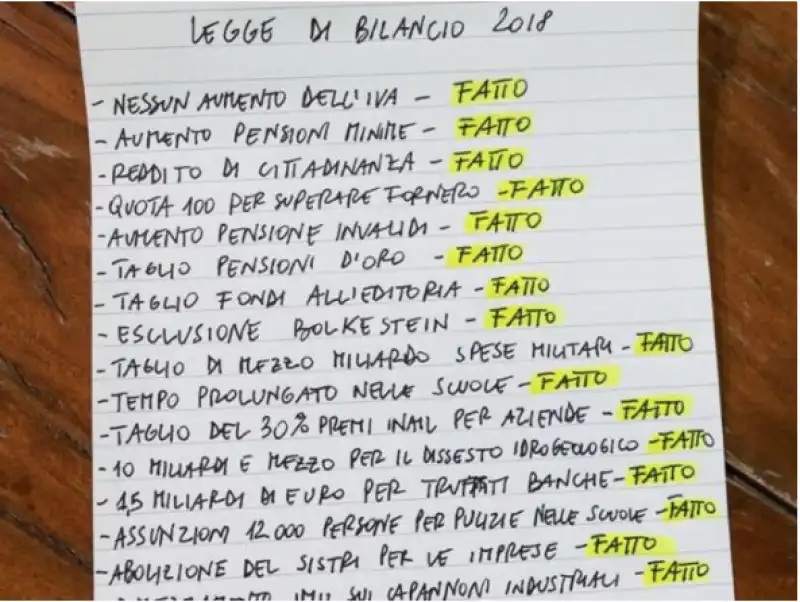 LEGGE DI BILANCIO 2018
- NESSUN AUMENTO DELL'IVA - FATTO
- AUMENTO PENSIONI MINIME - FATTO
- REDDITO DI CITTADINANZA - FATTO
- QUOTA 100 PER SUPERARE FORNERO - FATTO
- AUMENTO PENSIONE INVALIDI - FATTO
- TAGLIO PENSIONI D'ORO - FATTO
- TAGLIO FONDI ALL'EDITORIA - FATTO
- ESCLUSIONE BOLKESTEIN - FATTO
- TAGLIO DI MEZZO MILIARDO SPESE MILITARI - FATTO
- TEMPO PROLUNGATO NELLE SCUOLE - FATTO
- TAGLIO DEL 30% PREMI INAIL PER AZIENDE - FATTO
- 10 MILIARDI E MEZZO PER IL DISSESTO IDROGEOLOGICO - FATTO
- 1,5 MILIARDI DI EURO PER TRUFFATI BANCHE - FATTO
- ASSUNZIONI 12000 PERSONE PER PULIZIE NELLE SCUOLE - FATTO
- ABOLIZIONE DEL SISTRI PER LE IMPRESE - FATTO
IMU SUI CAPANNONI INDUSTRIALI - FATTO